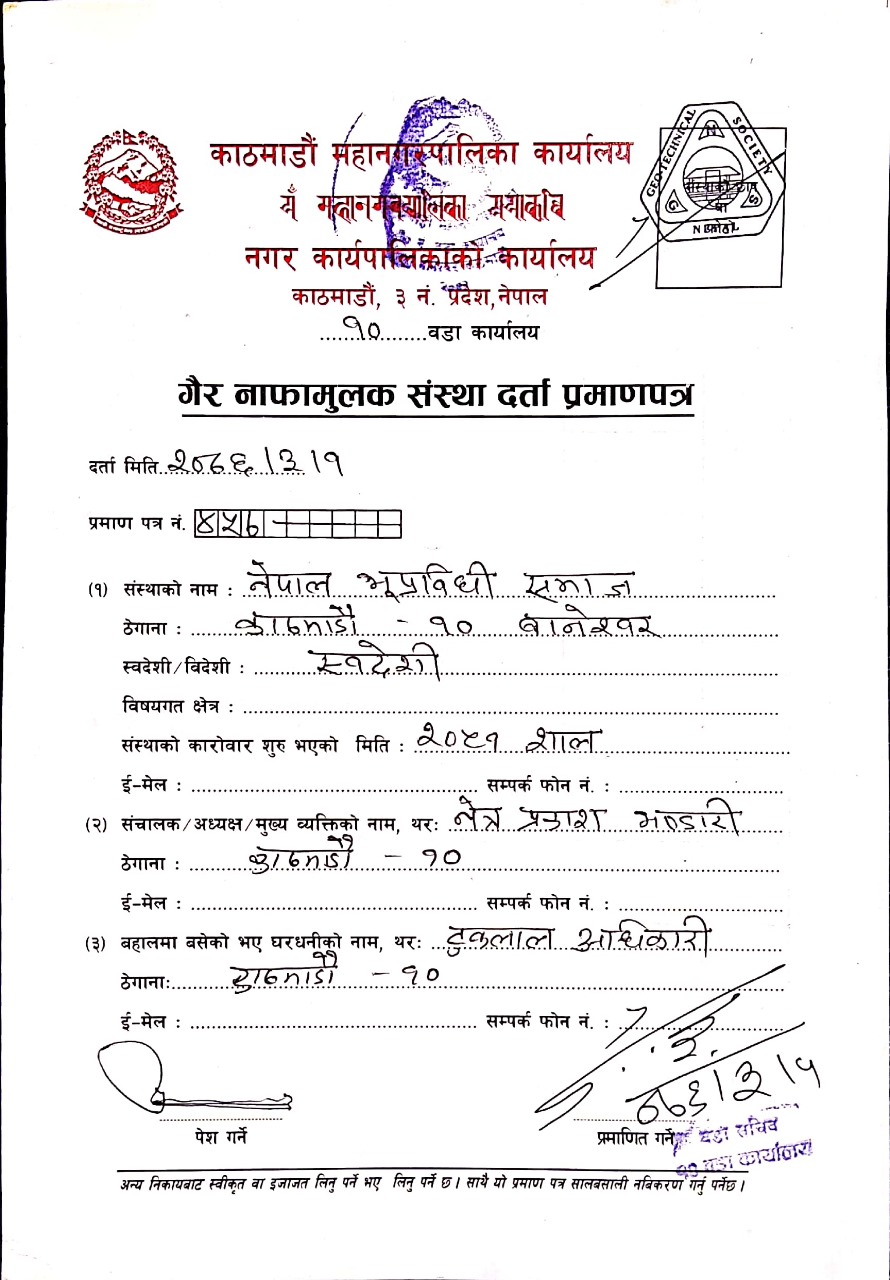 काठमाडौं महानगरपालिका कार्यालय
नगर कार्यपालिकाको कार्यालय
काठमाडौं, ३ नं. प्रदेश, नेपाल
१० वडा कार्यालय
GEOTECHNICAL SOCIETY
N G S
गैर नाफामुलक संस्था दर्ता प्रमाणपत्र
दर्ता मिति २०७६/३/१
प्रमाण पत्र नं. ४५७
(१) संस्थाको नाम : नेपाल भूप्रविधी समाज
ठेगाना : काठमाडौं - १० बानेश्वर
स्वदेशी/विदेशी : स्वदेशी
विषयगत क्षेत्र :
संस्थाको कारोवार शुरु भएको मिति : २०५१ शाल
ई-मेल : सम्पर्क फोन नं. :
(२) संचालक/अध्यक्ष/मुख्य व्यक्तिको नाम, थरः नेत्र प्रकाश भण्डारी
ठेगाना : काठमाडौं - १०
ई-मेल : सम्पर्क फोन नं. :
(३) बहालमा बसेको भए घरधनीको नाम, थरः टुकलाल अधिकारी
ठेगानाः काठमाडौं - १०
ई-मेल : सम्पर्क फोन नं. :
०७६/३/१
पेश गर्ने प्रमाणित गर्ने
वडा सचिव
१० वडा कार्यालय
अन्य निकायबाट स्वीकृत वा इजाजत लिनु पर्ने भए लिनु पर्ने छ । साथै यो प्रमाण पत्र सालबसाली नबिकरण गर्नु पर्नेछ ।